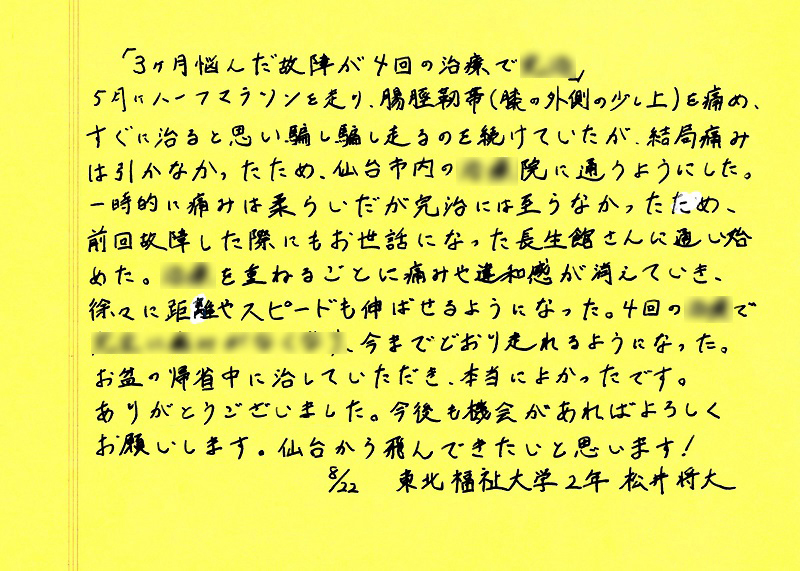 「3ヶ月悩んだ故障が4回の治療で」
5月にハーフマラソンを走り、腸脛靭帯(膝の外側の少し上)を痛め、
すぐに治ると思い騙し騙し走るのを続けていたが、結局痛み
は引かなかったため、仙台市内の院に通うようにした。
一時的に痛みは柔らいだが完治には至らなかったため、
前回故障した際にもお世話になった長生館さんに通い始
めた。を重ねるごとに痛みや違和感が消えていき、
徐々に距離やスピードも伸ばせるようになった。4回ので
、今までどおり走れるようになった。
お盆の帰省中に治していただき、本当によかったです。
ありがとうございました。今後も機会があればよろしく
お願いします。仙台から飛んできたいと思います!
8/22 東北福祉大学2年 松井将大